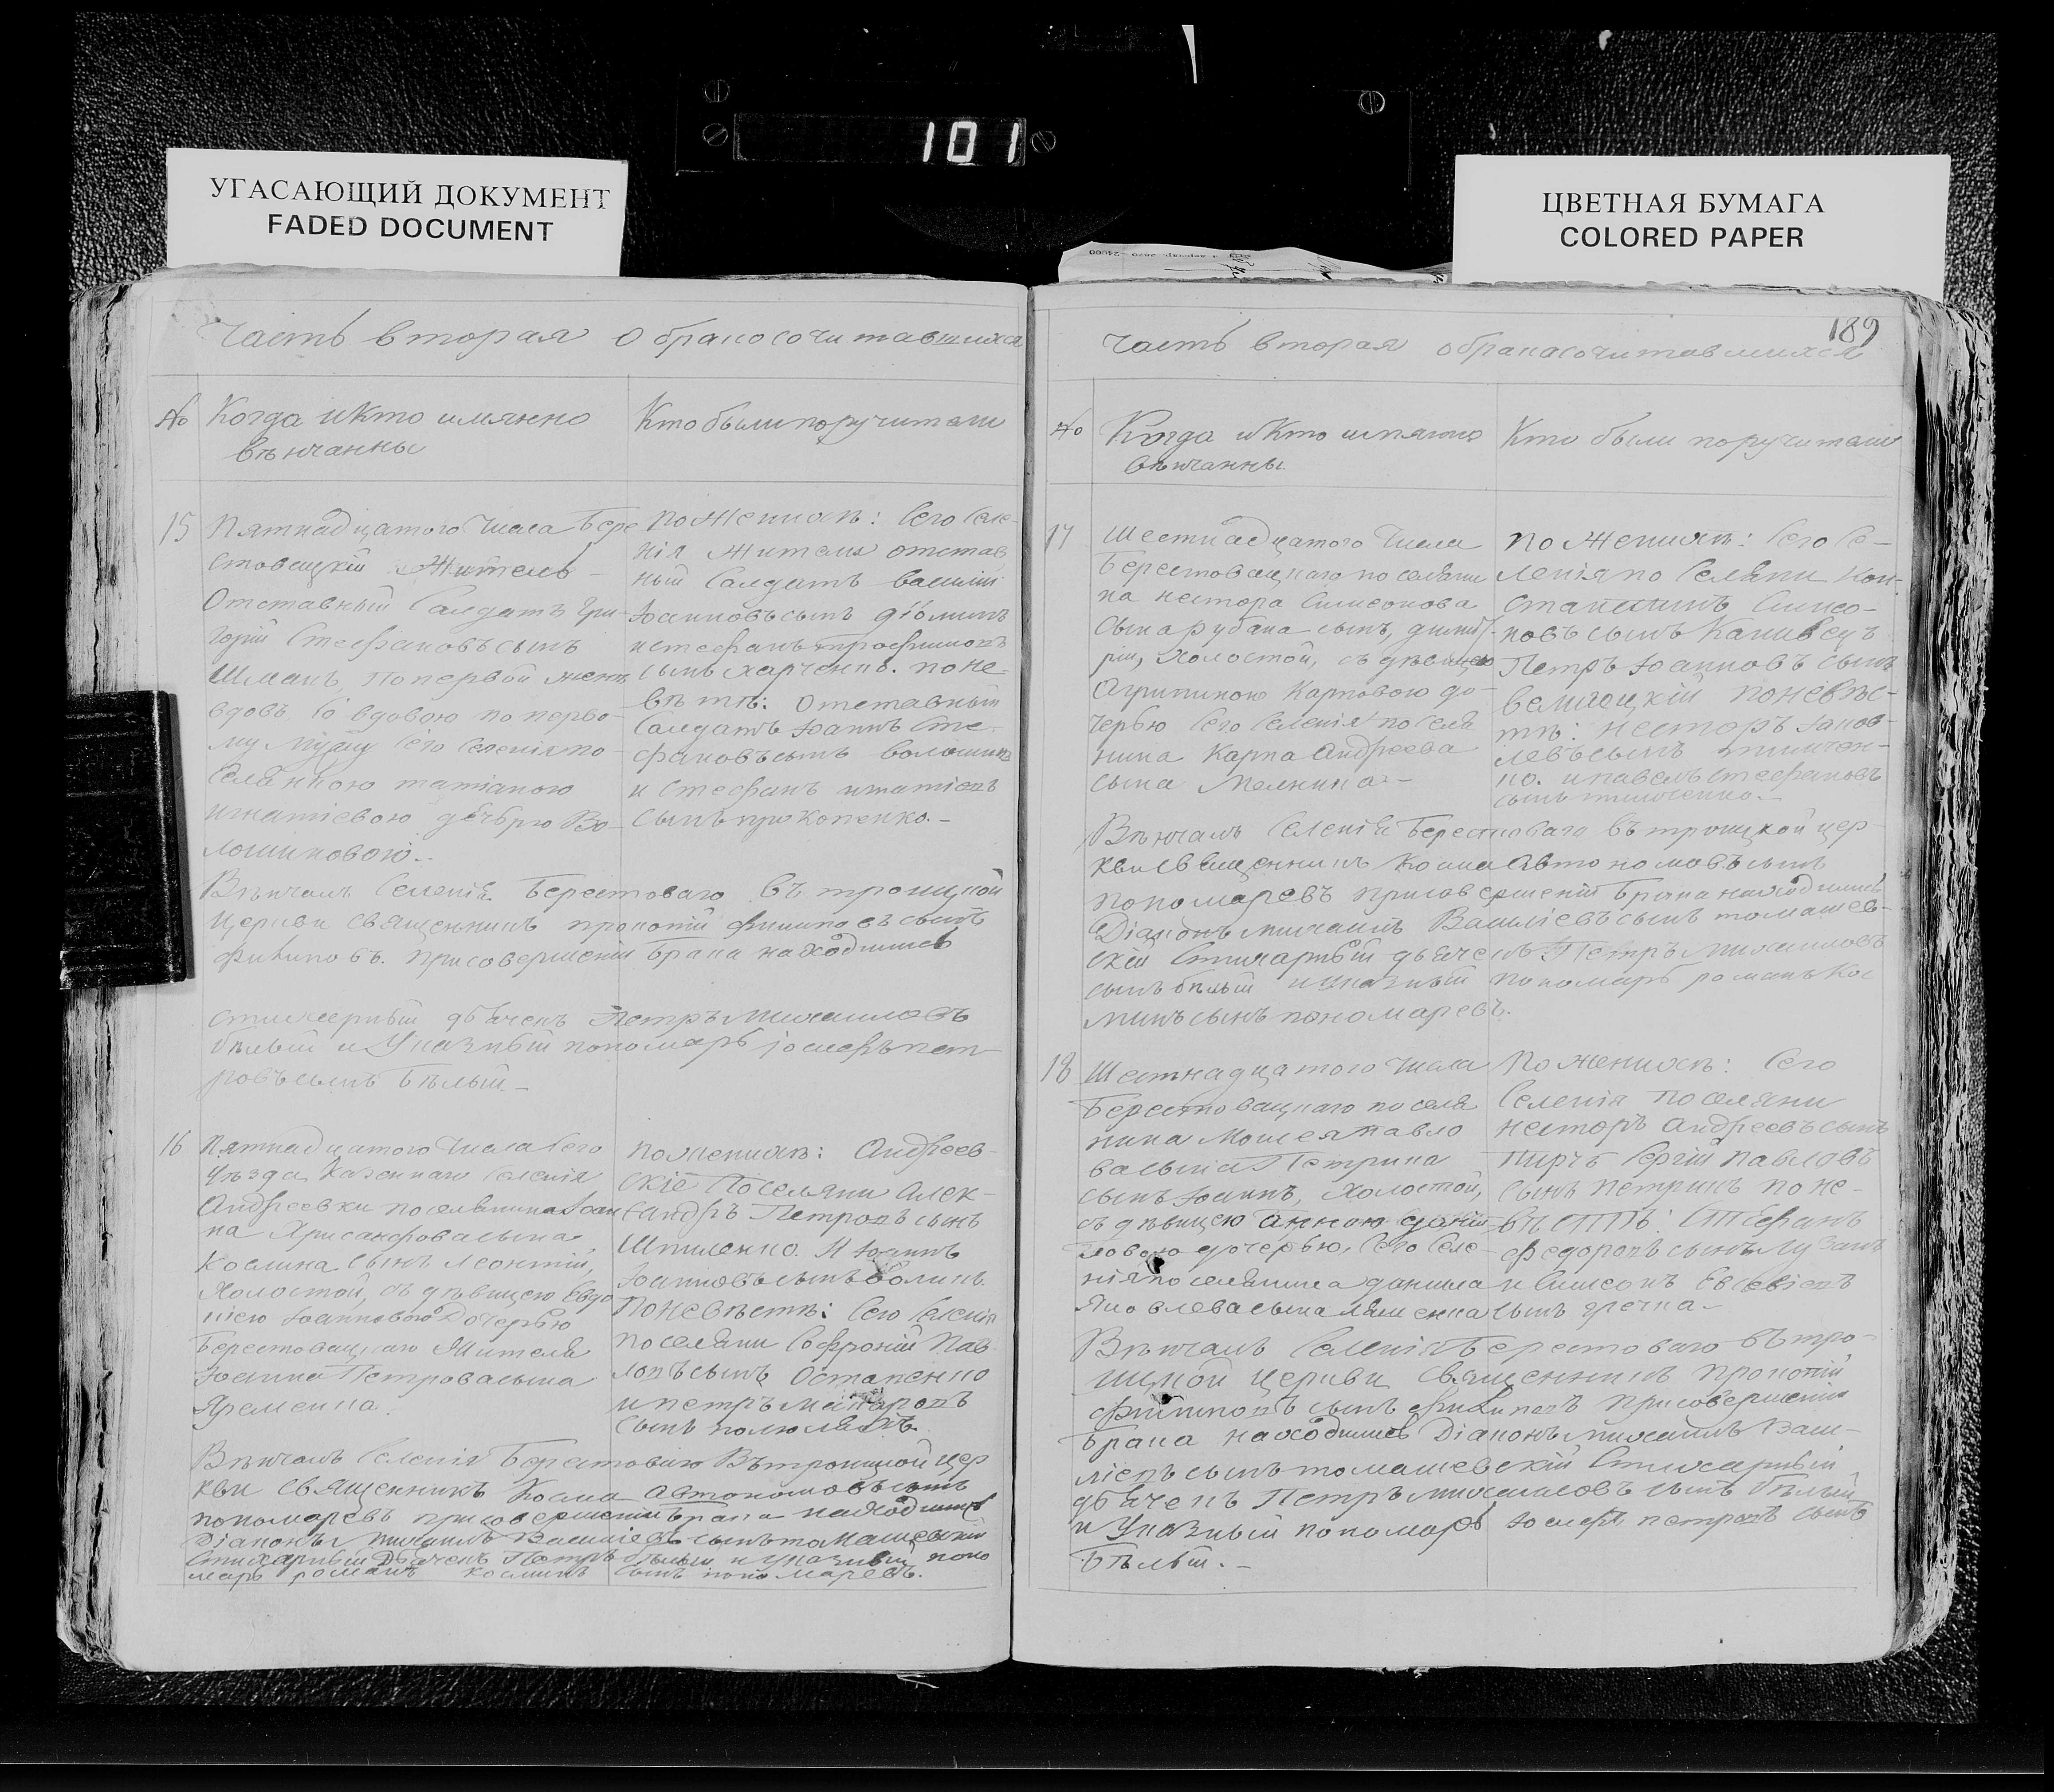 101
УГАСАЮЩИЙ ДОКУМЕНТ
FADED DOCUMENT
ЦВЕТНАЯ БУМАГА
COLORED PAPER
Часть вторая о бракосочитавшихся
№ Когда и кто имянно
вѣнчанны
Кто были поручители
15 Пятнадцатого числа Бере
стовацкій Житель
Отставный Салдатъ Гри-
горій Стефановъ сынъ
Шманъ, по первой женѣ
вдовъ, со вдовою по перво-
му мужу сего селенія по-
селянкою татіаною
игнатіевою дочерью Во-
лошиновою.
по Женихѣ: сего селе-
нія Жители отстав
ный Салдатъ Василій
Іоанновъ сынъ
и стефанъ трофимовъ
сынъ харченко. по не-
вѣстѣ: Отставный
Салдатъ Іоаннъ Сте-
фановъ сынъ волошинъ
и Стефанъ игнатіевъ
сынъ прокопенко.
Вѣнчалъ Селенія Берестоваго въ троицкой
Церкви священникъ прокопій филиповъ сынъ
филиповъ. при совершеніи брака находились
стихарный дьячекъ Петръ михаиловъ
бѣлый и Указный пономарь іосифъ пет
ровъ сынъ Бѣлый
16 Пятнадцатого числа сего
уѣзда Казеннаго селенія
Андреевки поселянина Іоан
на Хрисанфова сына
Космина сынъ леонтій,
Холостой, съ дѣвицею Евдо
кіею Іоанновою Дочерью
Берестовацкаго Жителя
Іоанна Петрова сына
Яременка.
по женихѣ: Андреев-
скіе Поселяни Алек-
сандръ Петровъ сынъ
Шпиленко. И Іоаннъ
Іоанновъ сынъ
По невѣстѣ: сего селенія
поселяни Софроній Пав
ловъ сынъ Остапенко
и петръ макаровъ
сынъ
Вѣнчалъ Селенія Берестоваго Въ троицкой цер
кви священникъ Косма Автономовъ сынъ
пономаревъ при совершеніи брака находились
Діаконъ михаилъ Василіевъ сынъ томашевскій
Стихарный Дьячекъ Петръ бѣлый и Указный поно
марь романъ косминъ сынъ пономаревъ.
189
Часть вторая о бракасочитавшихся
№ Когда и кто имянно
вѣнчанны
Кто были поручители
17 Шестнадцатого числа
Берестовацкаго поселяни
на нестора Симеонова
сына рубана сынъ, димит-
рій, холостой, съ дѣвицею
Агрипиною Карповою до-
черью сего селенія поселя
нина Карпа Андреева
сына Мелника
по Женихѣ: сего се-
ленія поселяни Кон-
стантинъ Симео-
новъ сынъ Канивецъ
Петръ Іоанновъ сынъ
велигоцкій по невѣс-
тѣ: несторъ іаков-
левъ сынъ тимчен-
ко. и павелъ стефановъ
сынъ тимченко.
Вѣнчалъ Селенія Берестоваго въ троицкой цер
кви священникъ Косма Автономовъ сынъ
пономаревъ при совершеніи брака находились
Діаконъ михаилъ Василіевъ сынъ томашев-
скій Стихарный дьячекъ Петръ михаиловъ
сынъ бѣлый и указный пономарь романъ Кос
минъ сынъ пономаревъ.
18 Шестнадцатого числа
Берестовацкаго поселя
нина Моисея павло
ва сына Петрика
сынъ Іоаннъ, холостой,
съ дѣвицею Анною Даніи
ловою дочерью, сего селе
нія поселянина даніила
Яковлева сына
По женихѣ: Сего
Селенія Поселяни
несторъ Андреевъ сынъ
Сергій Павловъ
сынъ петрикъ по не-
вѣстѣ: Стефанъ
федоровъ сынъ
и Симеонъ Евсевіевъ
сынъ гречка
Вѣнчалъ Селенія Берестоваго въ тро-
ицкой церкви священникъ прокопій
филиповъ сынъ филиповъ при совершеніи
брака находились Діаконъ михаилъ Васи-
ліевъ сынъ томашевскій Стихарный
дьячекъ Петръ михаиловъ сынъ бѣлый
и Указный пономарь Іосифъ петровъ сынъ
Бѣлый.